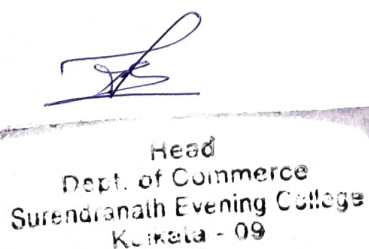 Head
Dept. of Commerce
Surendranath Evening College
Kolkata - 09